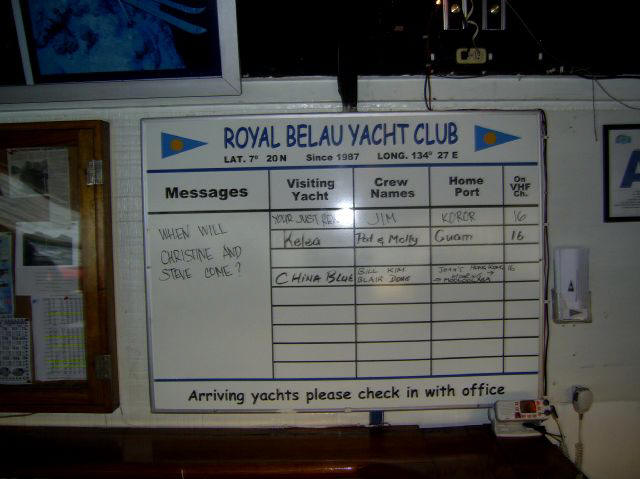 ROYAL BELAU YACHT CLUB
LAT. 7° 20 N Since 1987 LONG. 134° 27 E
Messages Visiting Yacht Crew Names Home Port On VHF Ch.
YOUR JUST JIM KOROR 16
Kelea Pat & Molly Guam 16
WHEN WILL
CHRISTINE AND
STEVE COME?
CHINA BLUE BILL KIM BLAIR DONE HONG KONG 16
Arriving yachts please check in with office